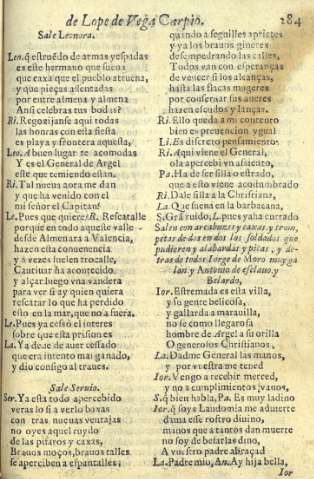 de Lope de Vega Carpio. 284
Sale Leonora.
Leo. q̃ estruẽdo de armas y espadas
es este hermano que suena
que caxa que el pueblo atruena,
y que pieças assentadas
por entre almena y almena
Ansi celebras tus bodas?
Ri. Regozijanse aqui todas
las honras con esta fiesta
es playa y frontera aquesta,
Leo. A buen lugar te acomodas
Y es el General de Argel
este que temiendo estan.
Ri. Tal nueua aora me dan
y que ha venido con el
mi señor el Capitan?
Le. Pues que quiere? R. Rescatalle
porque en todo aqueste valle
desde Almenara a Valencia,
hazen esta conuenencia
y a vezes suelen trocalle,
Cautiuar ha acontecido,
y alçar luego vna vandera
para ver si ay quien quiera
rescatar lo que ha perdido
esto en la mar, que no a fuera.
Le. Pues ya cessó el interes
sobre que està prisiones
La. Ya deue de auer cessado
que era intento mal ganado,
y dio consigo al traues.
Sale Seruio.
Ser. Ya esta todo apercebido
veras lo si a verlo baxas
con tras nueuas ventajas
no oyes aquel ruydo
de las pifaros y caxas,
Brauos moços, brauos talles
se aperciben a espantalles;
quando a seguilles aprietes
y ya los brauos ginetes
desempedrando las calles,
Todos van con esperanças
de vencer si los alcanças,
hasta las flacas mugeres
por conseruar sus aueres
hazen escudos y lanças.
Ri. Ello queda a mi contento
bien es preuencion ygual
Li. Es discreto pensamiento
Ri. Aqui viene el General,
ola apercebi vn assiento,
Pa. Ha de ser silla o estrado,
que a esto viene acostumbrado
Ri. Dale silla a la Christiana,
La. Que suena en la barbacana,
S. Grã ruido, L. pues ya ha currado
Salen con arcabuzes y caxas, y trom
petas de dos en dos los soldados que
pudieren y alabardas y picas, y de
tras de todos Iorge de Moro muy ga
lan y Antonio de esclauo y
Belardo,
Ior. Estremada es esta villa,
y su gente belicosa,
y gallarda a marauilla,
no se como llega rosa
hombre de Argel a su orilla
O generosos Christianos,
La. Dadme General las manos,
y por vuestra me tened
Ior. Vengo a recebir merced,
y no a cumplimientos vanos,
S. q̃ bien habla, Pa. Es muy ladino
Ior. q̃ soys Laudomia me aduierte
dama esse rostro diuino,
manos que a tantos dan muerte
no soy de besarlas dino,
A vuestro padre abraçad
La. Padre mio, An. Ay hija bella,
Ior